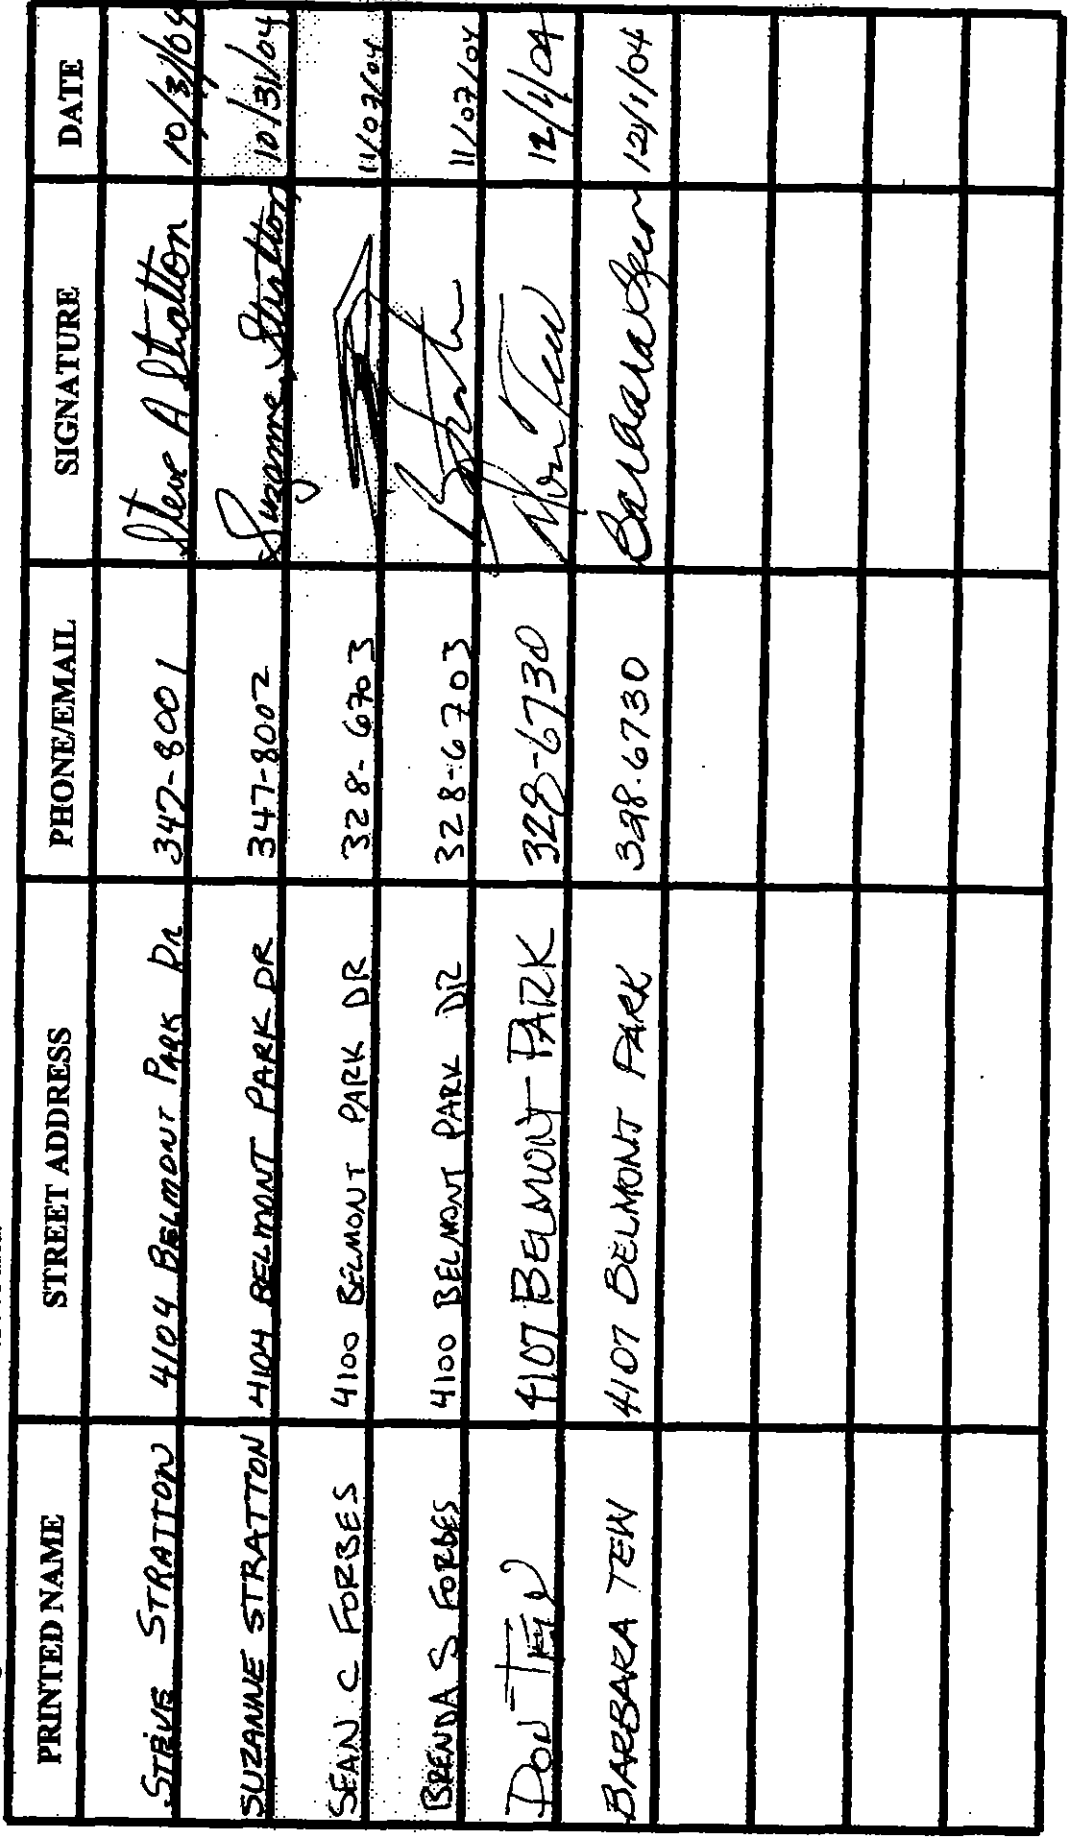 PRINTED NAME STREET ADDRESS PHONE/EMAIL SIGNATURE DATE
STEVE STRATTON 4104 BELMONT PARK DR 347-8001 Steve A Stratton 10/31/04
SUZANNE STRATTON 4104 BELMONT PARK DR 347-8002 Suzanne Stratton 10/31/04
SEAN C FORBES 4100 BELMONT PARK DR 328-6703 11/07/04
BRENDA S FORBES 4100 BELMONT PARK DR 328-6703 11/07/04
DON TEW 4107 BELMONT PARK 328-6730 Don Tew 12/1/04
BARBARA TEW 4107 BELMONT PARK 328.6730 Barbara Tew 12/1/04